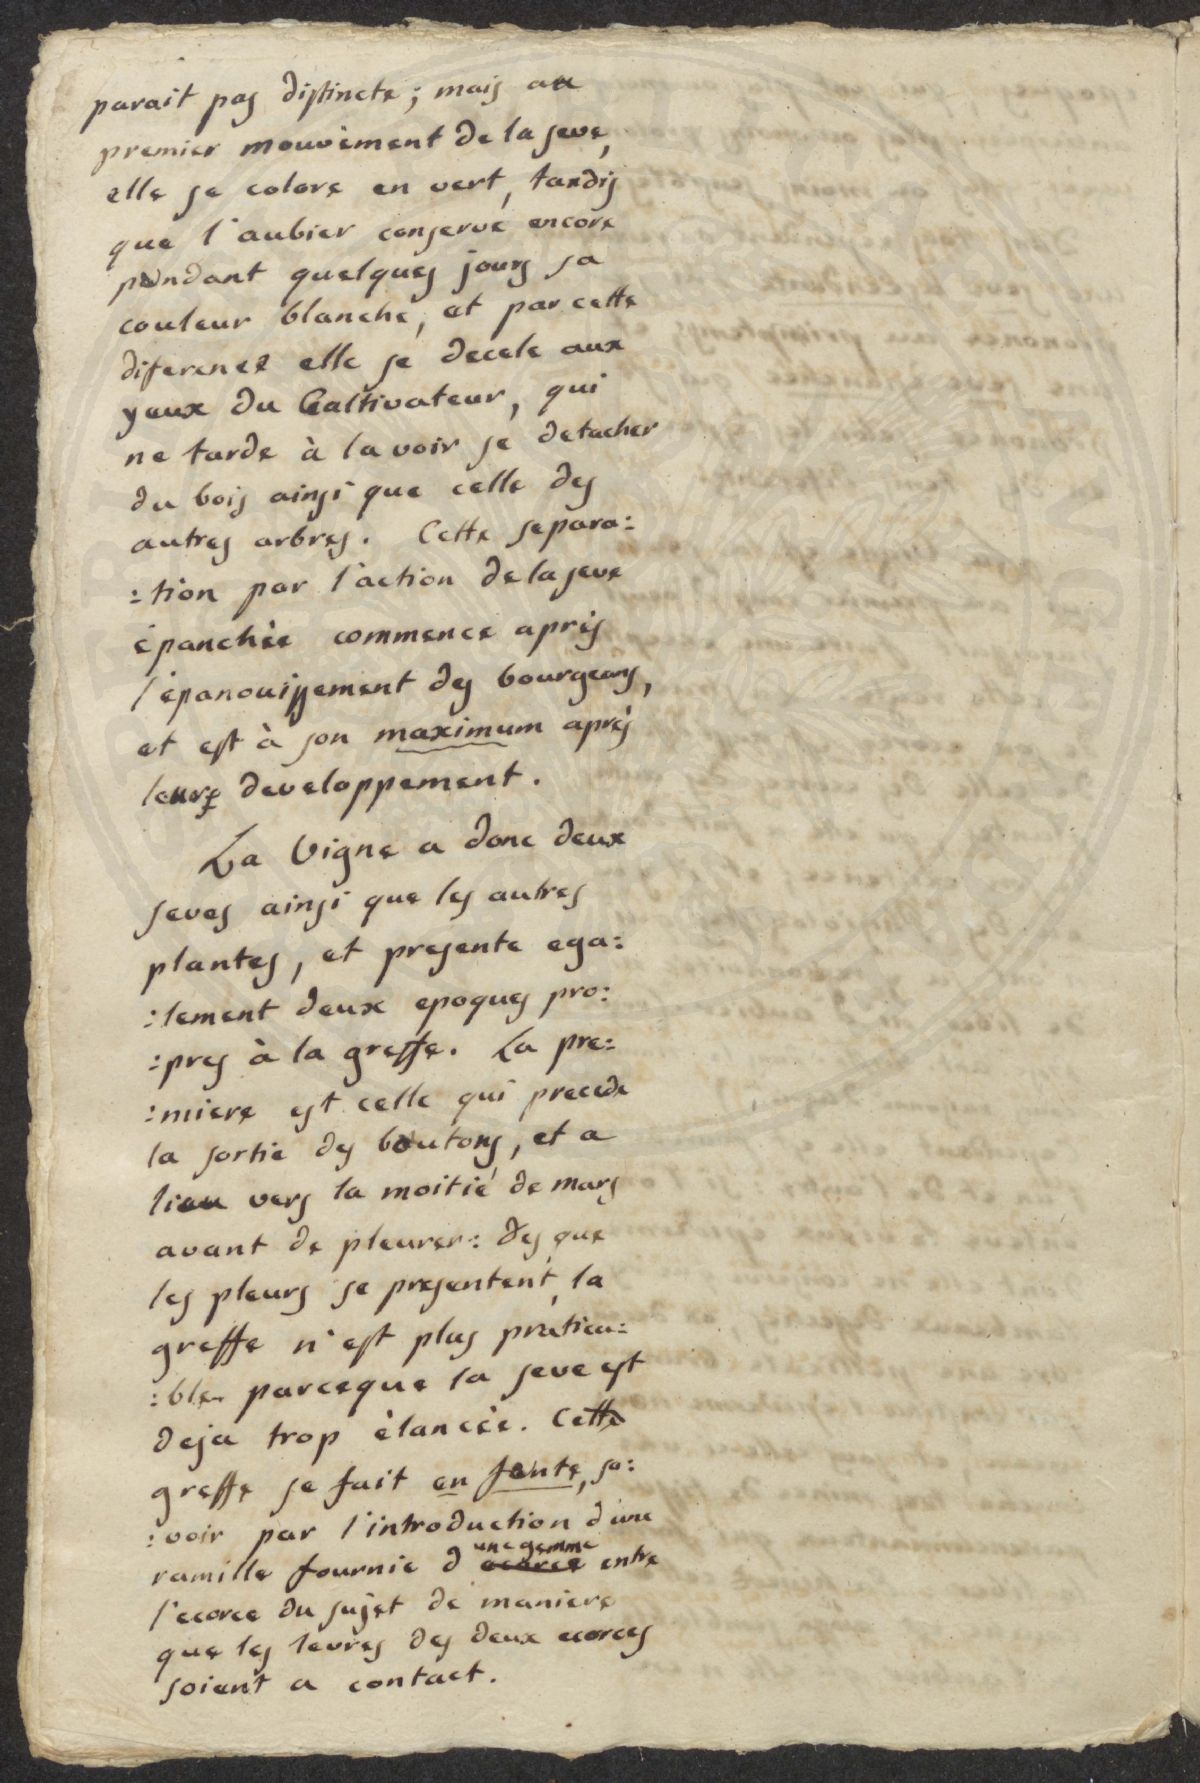 parait pas distincte; mais au
premier mouvement de la seve,
elle se colore en vert, tandis
que l'aubier conserve encore
pendant quelques jours sa
couleur blanche, et par cette
diference elle se decele aux
yeux du Cultivateur, qui
ne tarde à la voir se detacher
du bois ainsi que celle des
autres arbres. Cette separa:
:tion par l'action de la seve
épanchée commence aprés
l'épanouissement des bourgeons,
et est à son maximum aprés
leur developpement.
La Vigne a donc deux
seves ainsi que les autres
plantes, et presente ega:
:lement deux epoques pro:
:pres à la greffe. La pre:
:miere est celle qui precede
la sortie des boutons, et a
lieu vers la moitié de mars
avant de pleurer: des que
les pleurs se presentent, la
greffe n'est plus pratica:
:ble parceque la seve est
deja trop élancée. Cette
greffe se fait en fente, sa:
:voir par l'introduction d'une
ramille fournie d'une gemme entre
l'ecorce du sujet de maniere
que les levres des deux ecorces
soient a contact.